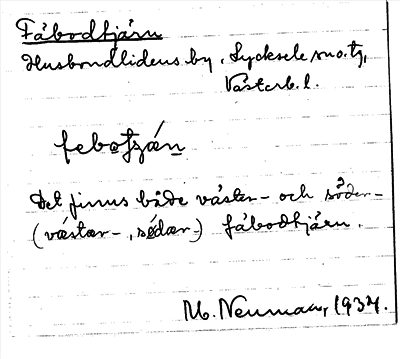 Fäbodtjärn
Husbondlidens by, Lycksele sn o. tg,
Västerb. l.
febotjǽn
Det finns både väster- och söder-
(væster-, södær-) fäbodtjärn.
M. Neuman, 1934.